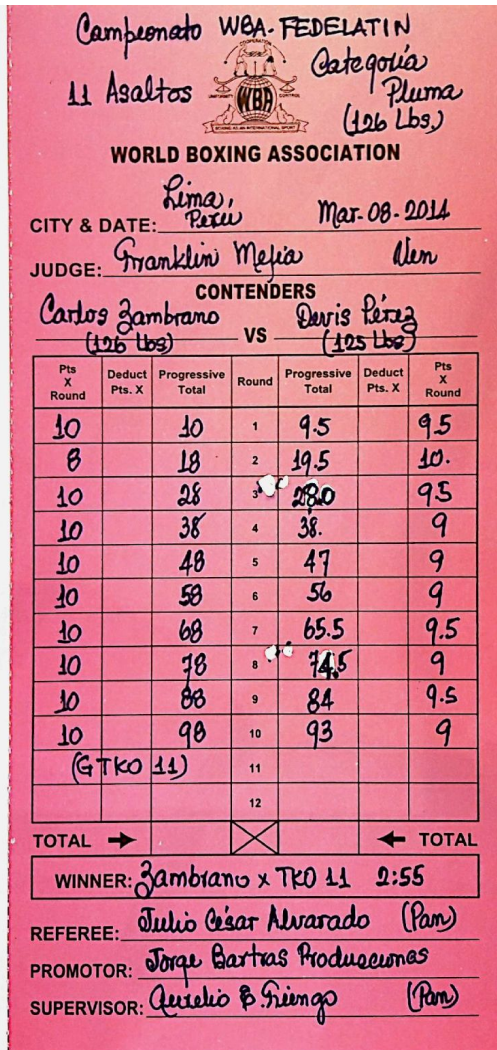 Campeonato WBA-FEDELATIN
11 Asaltos Categoría Pluma (126 Lbs.)
COOPERATION
WBA
BOXING AS AN INTERNATIONAL SPORT
WORLD BOXING ASSOCIATION
CITY & DATE: Lima, Perú Mar-08-2014
JUDGE: Franklin Mejia Ven
CONTENDERS
Carlos Zambrano (126 Lbs) VS Devis Pérez (125 Lbs)
Pts X Round Deduct Pts. X Progressive Total Round Progressive Total Deduct Pts. X Pts X Round
10 10 1 9.5 9.5
8 18 2 19.5 10.
10 28 3 28.0 9.5
10 38 4 38. 9
10 48 5 47 9
10 58 6 56 9
10 68 7 65.5 9.5
10 78 8 74.5 9
10 88 9 84 9.5
10 98 10 93 9
(G TKO 11) 11
12
TOTAL TOTAL
WINNER: Zambrano x TKO 11 2:55
REFEREE: Julio César Alvarado (Pan)
PROMOTOR: Jorge Bartras Producciones
SUPERVISOR: Aurelio (Pan)